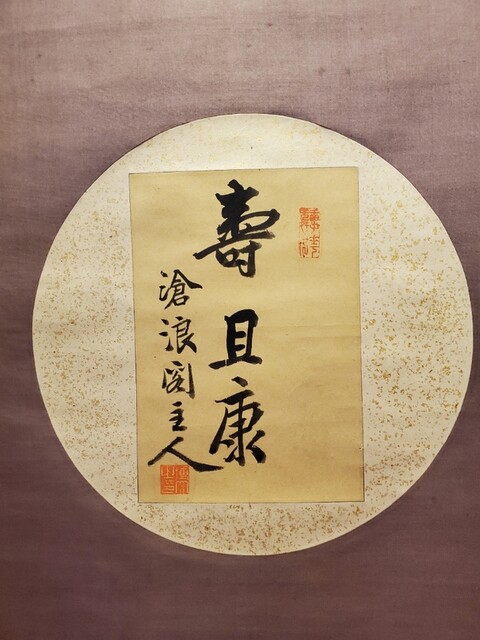 壽且康
滄浪閣主人